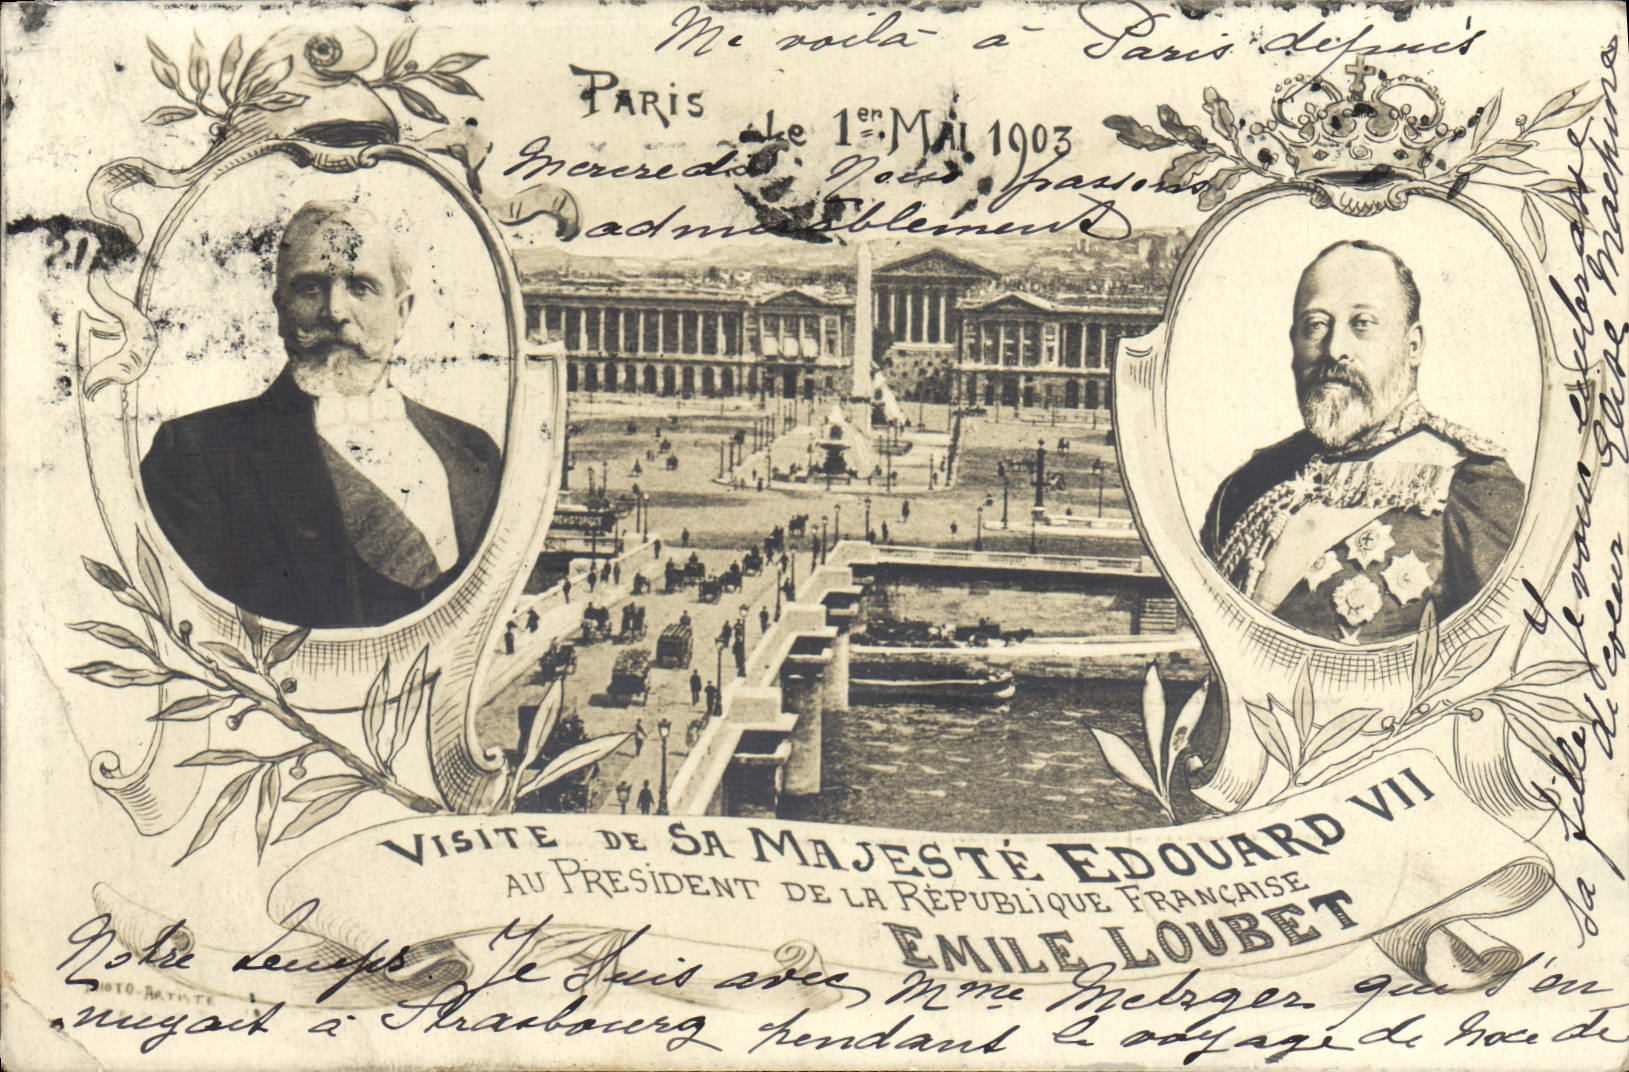 Me voilà à Paris depuis
PARIS
Le 1er MAI 1903
Mercredi. Nous passons
admirablement
PREHISTORIQUE
VISITE DE SA MAJESTÉ EDOUARD VII
AU PRESIDENT DE LA RÉPUBLIQUE FRANÇAISE
EMILE LOUBET
Notre temps. Je suis avec Mme Metzger qui s'en
PHOTO-ARTISTE
nuyait à Strasbourg pendant le voyage de Noce de
sa fille. Je vous embrasse
de coeur Elise Machine